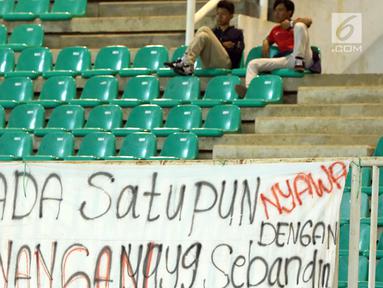 6.COM
ADA Satupun NYAWA
DENGAN
NANGAN yayg Sebandin